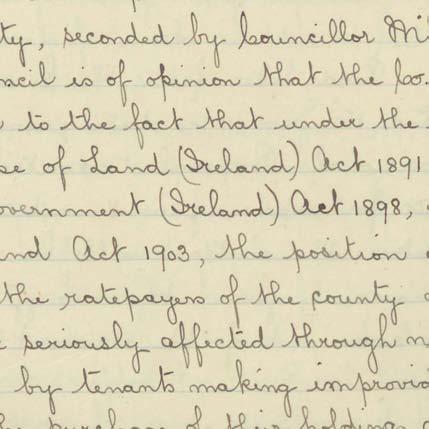 ty, seconded by Councillor
ncil is of opinion that the Co.
to the fact that under the
se of Land (Ireland) Act 1891
overnment (Ireland) Act 1898,
nd Act 1903, the position
the ratepayers of the county
seriously affected through
by tenants making improvid
the purchase of their holdings